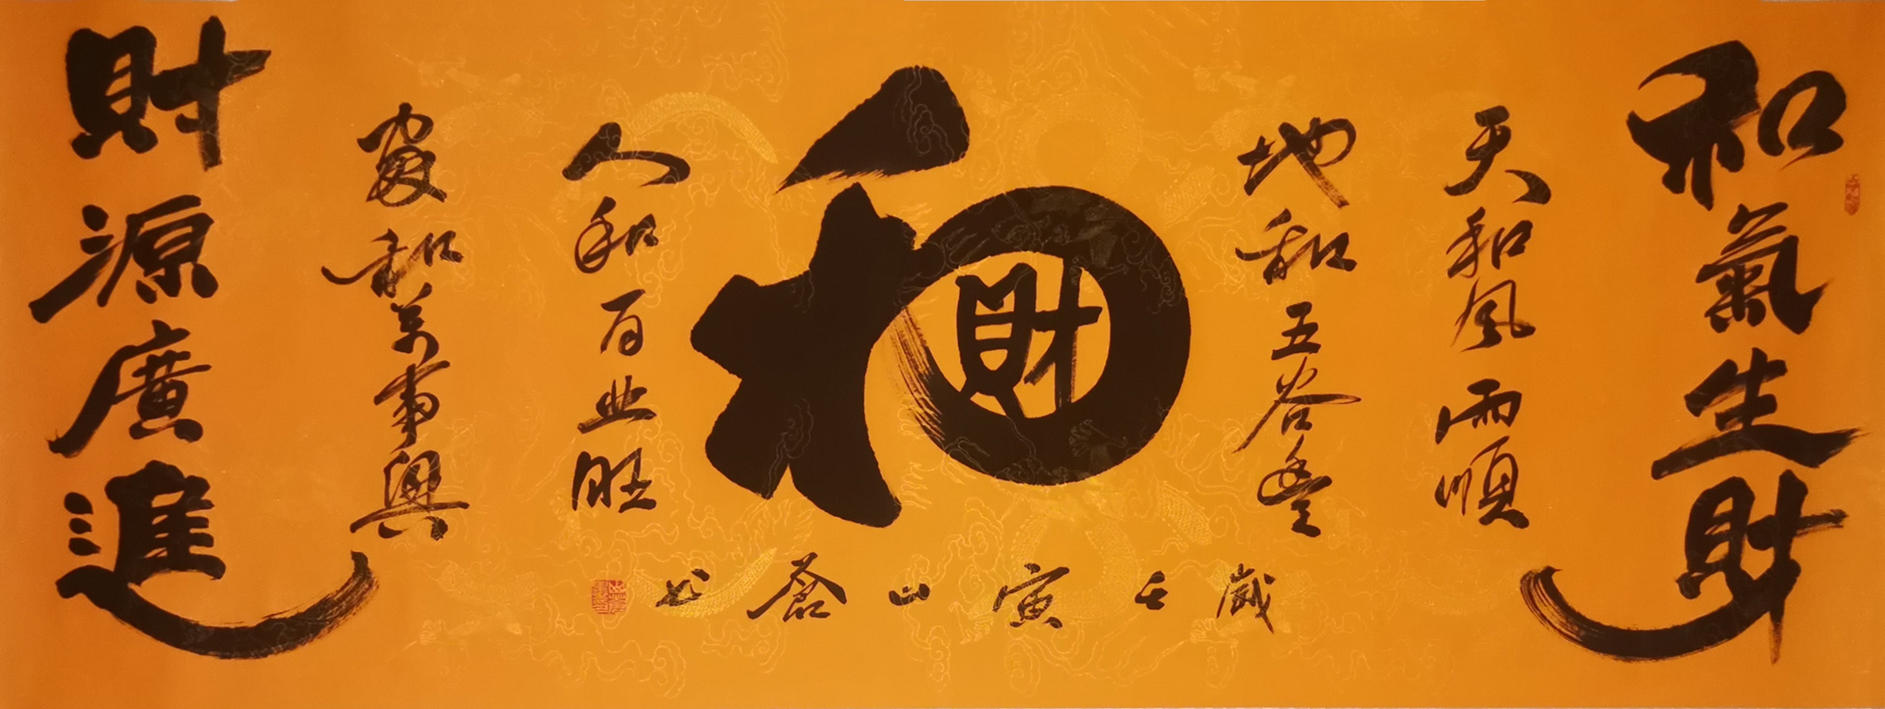 和氣生財
天和風雨順
地和五谷豐
和
財
人和百业旺
家和萬事興
財源廣進
歲壬寅山蒼书